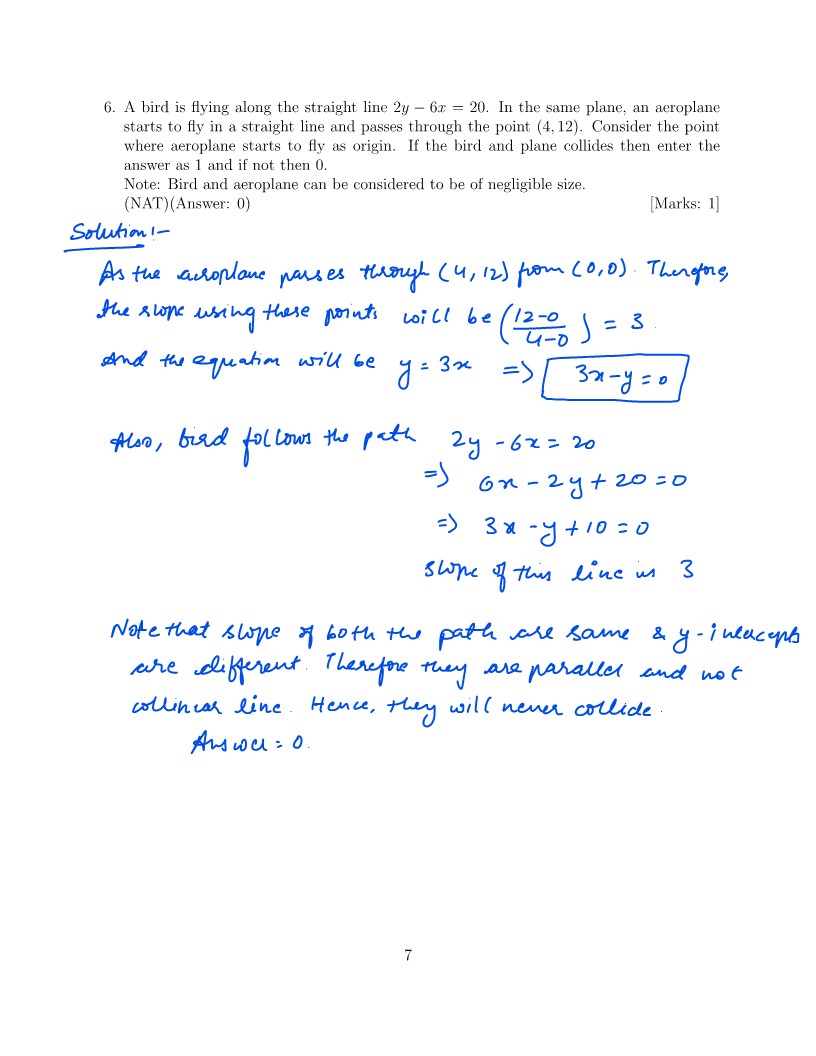 6. A bird is flying along the straight line 2y − 6x = 20. In the same plane, an aeroplane
starts to fly in a straight line and passes through the point (4, 12). Consider the point
where aeroplane starts to fly as origin. If the bird and plane collides then enter the
answer as 1 and if not then 0.
Note: Bird and aeroplane can be considered to be of negligible size.
(NAT)(Answer: 0) [Marks: 1]
Solution:-
As the aeroplane passes through (4, 12) from (0,0). Therefore,
the slope using these points will be (12-0/4-0) = 3.
And the equation will be y = 3x => 3x-y=0
Also, bird follows the path 2y -6x = 20
=> 6x - 2y + 20 = 0
=> 3x - y + 10 = 0
slope of this line is 3
Note that slope of both the path are same & y-intercepts
are different. Therefore they are parallel and not
collinear line. Hence, they will never collide.
Answer = 0.
7